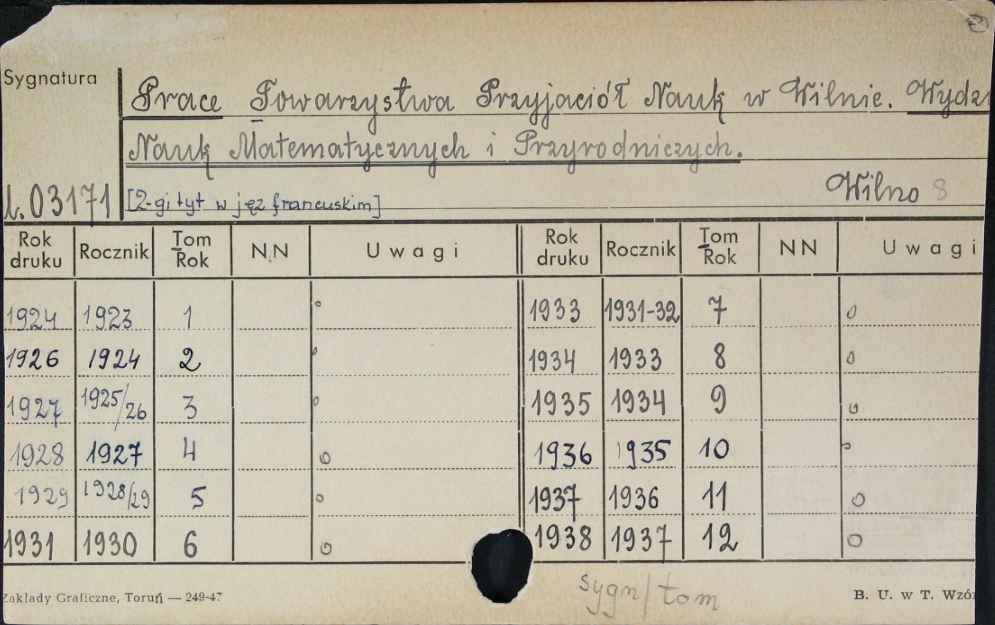 Sygnatura
Prace Towarzystwa Przyjaciół Nauk w Wilnie. Wydz
Nauk Matematycznych i Przyrodniczych.
L.03171 [2-gi tyt w jęz francuskim] Wilno 8
Rok druku Rocznik Tom Rok NN Uwagi Rok druku Rocznik Tom Rok NN Uwagi
1924 1923 1 o 1933 1931-32 7 o
1926 1924 2 o 1934 1933 8 o
1927 1925/26 3 o 1935 1934 9 o
1928 1927 4 o 1936 1935 10 o
1929 1928/29 5 o 1937 1936 11 o
1931 1930 6 o 1938 1937 12 o
sygn/tom
Zakłady Graficzne, Toruń — 249-47 B. U. w T. Wzór